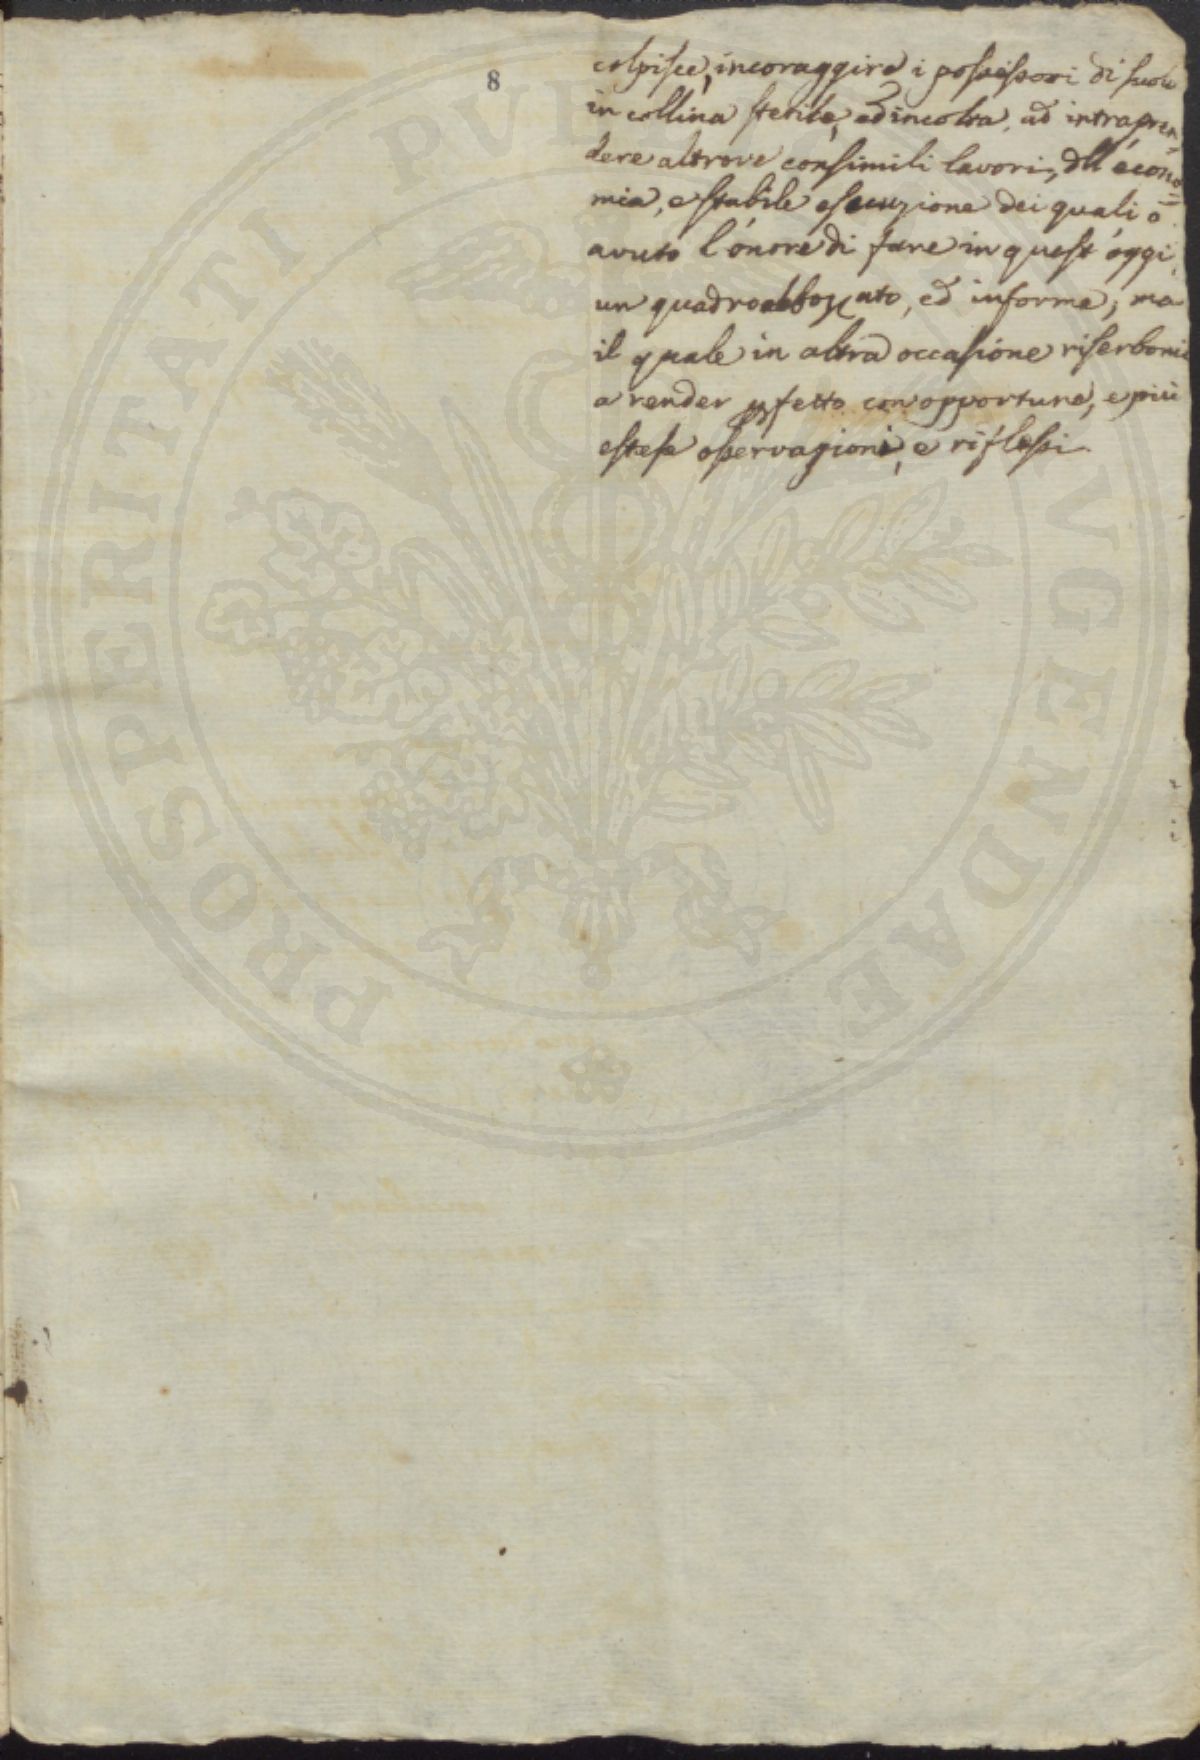 8
colpisce, incoraggire i possessori di suolo
in collina sterile, ed incolta, ad intrapren=
dere altrove consimili lavori, dll'econo=
mia, e stabile esecuzione dei quali ò
avuto l'onore di fare in quest'oggi,
un quadro abbozzato, ed informe, ma
il quale in altra occasione riserbomi
a render pfetto con opportune, e più
estese osservazioni, e riflessi.
PROSPERITATI PVBLICAE AVGENDAE